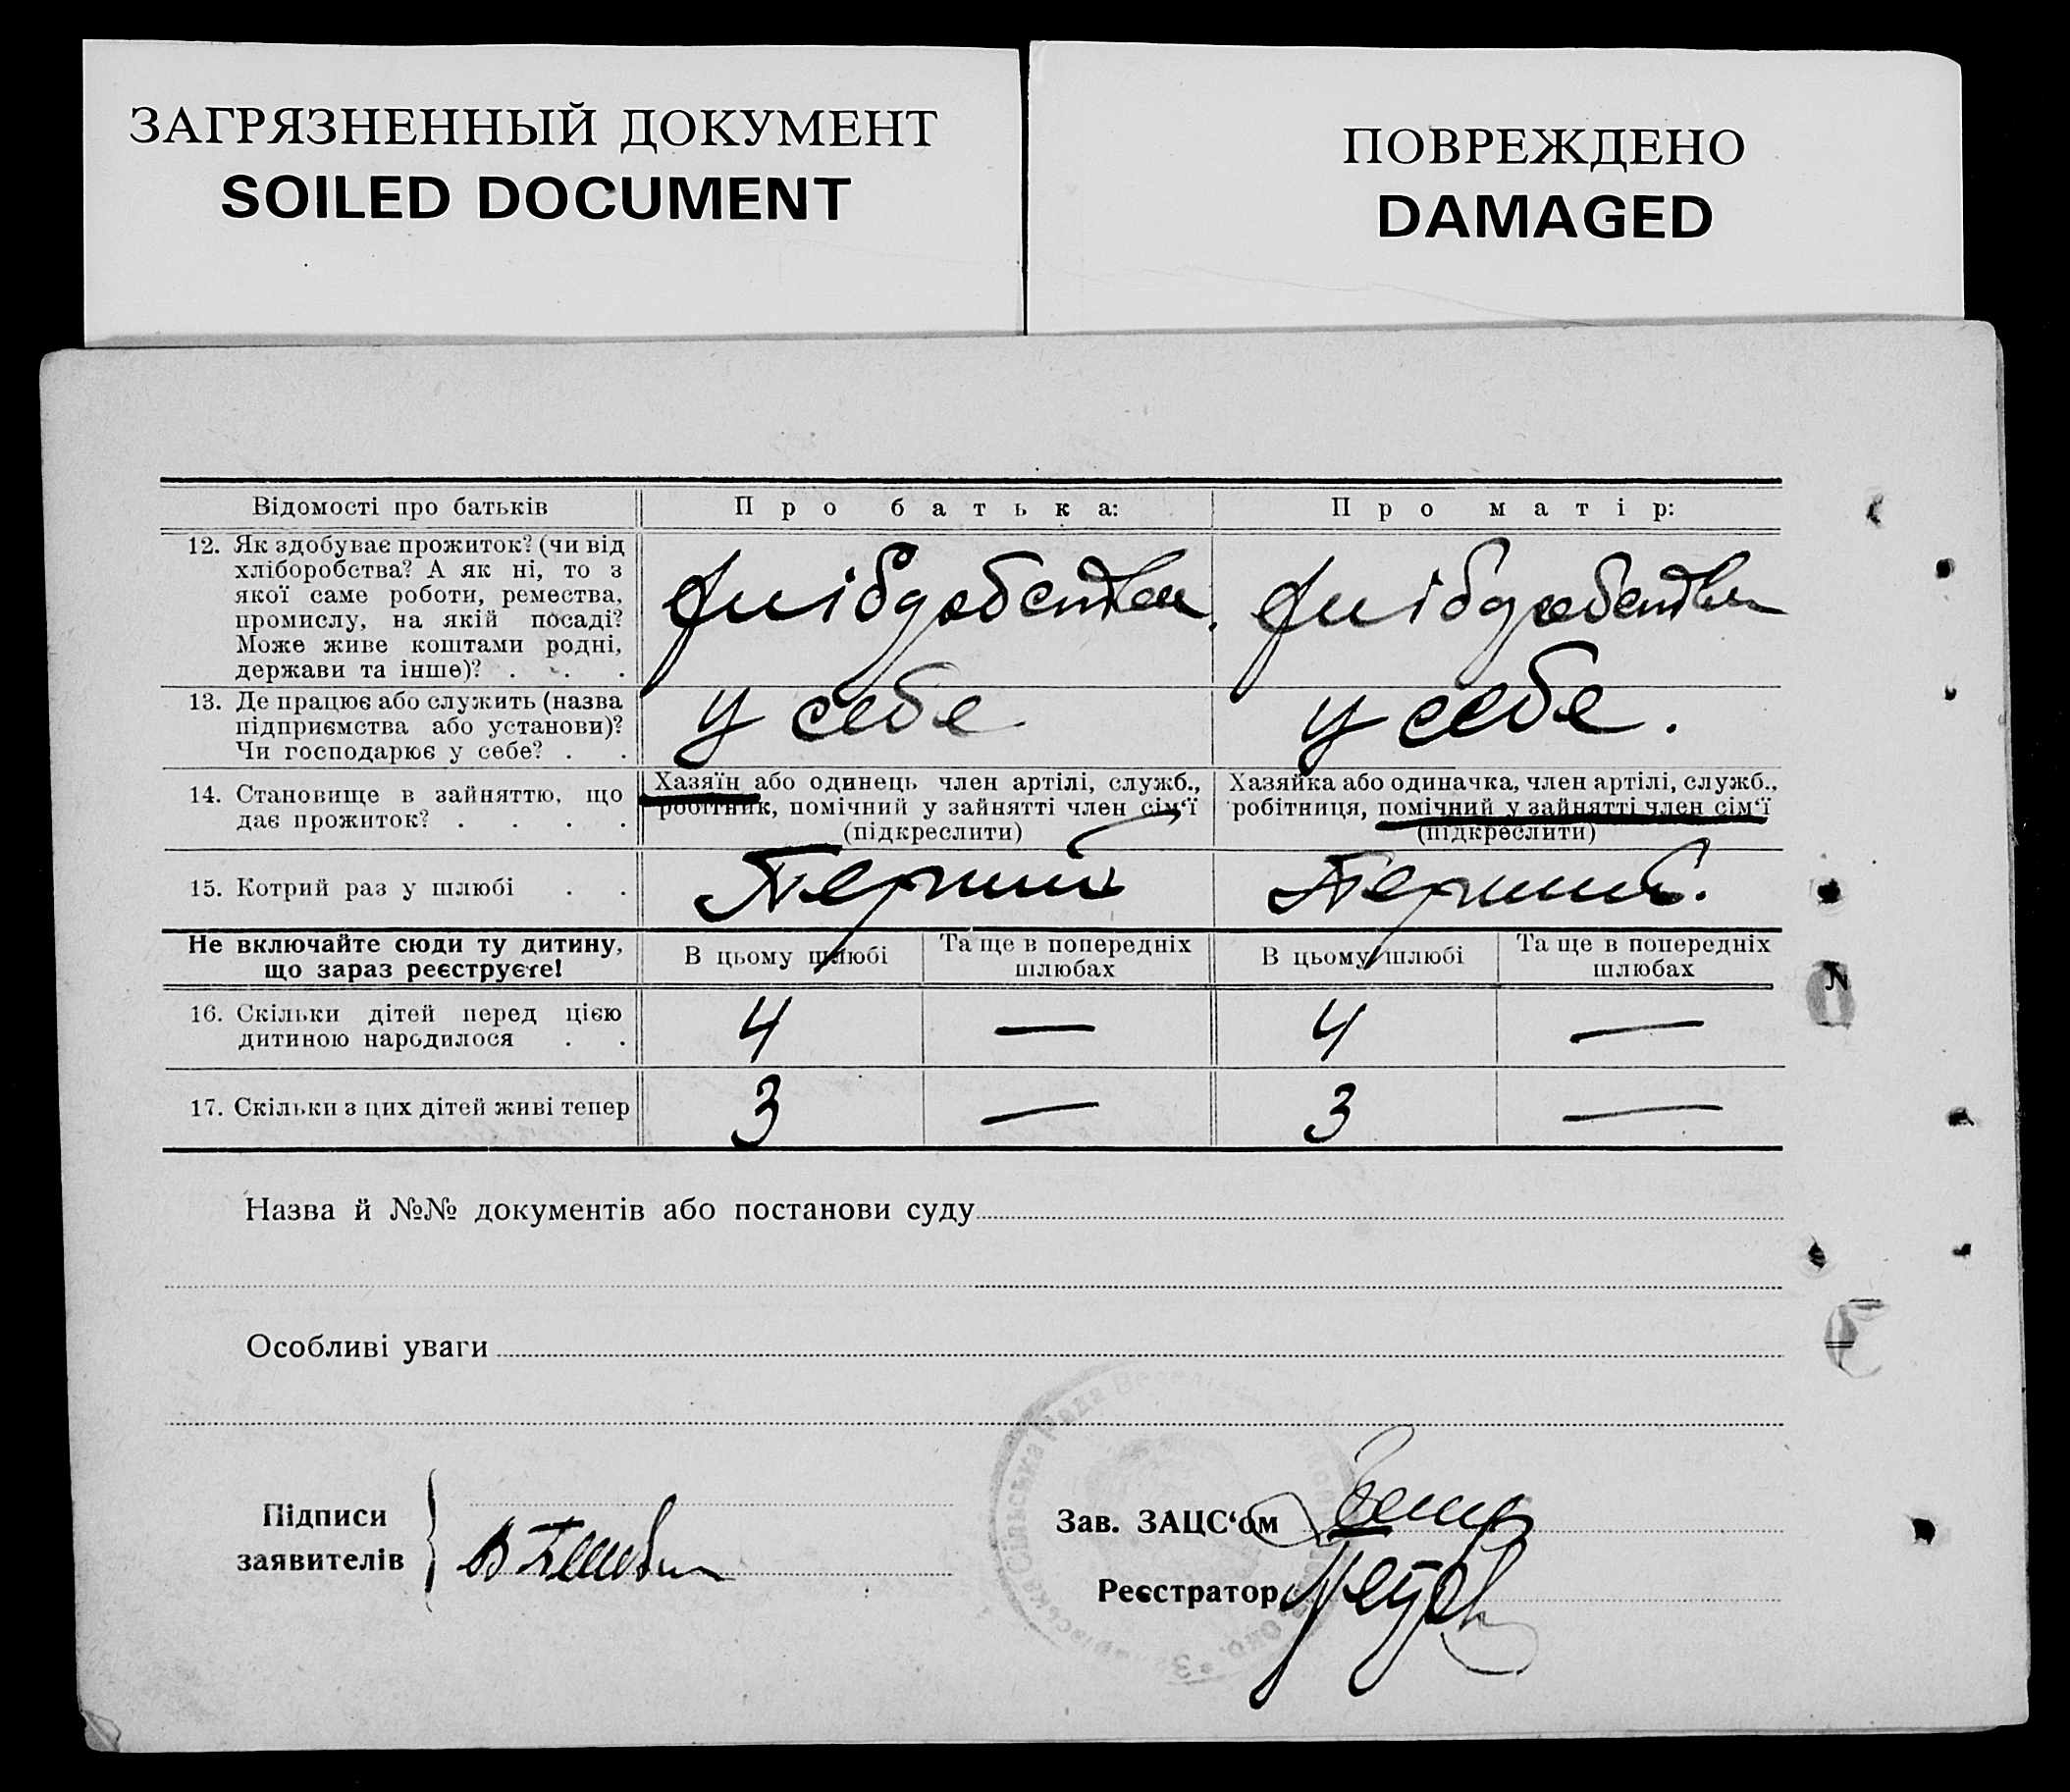 ЗАГРЯЗНЕННЫЙ ДОКУМЕНТ
SOILED DOCUMENT
ПОВРЕЖДЕНО
DAMAGED
Відомості про батьків
Про батька:
Про матір:
12. Як здобуває прожиток? (чи від
хліборобства? А як ні, то з
якої саме роботи, ремества,
промислу, на якій посаді?
Може живе коштами родні,
держави та інше)? . . .
13. Де працює або служить (назва
підприємства або установи)?
Чи господарює у себе? . .
у себе
у себе.
14. Становище в зайняттю, що
дає прожиток? . . . .
Хазяїн або одинець член артілі, служб.,
робітник, помічний у зайнятті член сім‘ї
(підкреслити)
Хазяйка або одиначка, член артілі, служб.,
робітниця, помічний у зайнятті член сім‘ї
(підкреслити)
15. Котрий раз у шлюбі . .
Перший
Перший.
Не включайте сюди ту дитину,
що зараз реєструєте!
В цьому шлюбі
Та ще в попередніх
шлюбах
В цьому шлюбі
Та ще в попередніх
шлюбах
16. Скільки дітей перед цією
дитиною народилося . .
4 — 4 —
17. Скільки з цих дітей живі тепер
3 — 3 —
Назва й №№ документів або постанови суду
Особливі уваги
Підписи
заявителів
Зав. ЗАЦС‘ом
Реєстратор
Сільська Рада